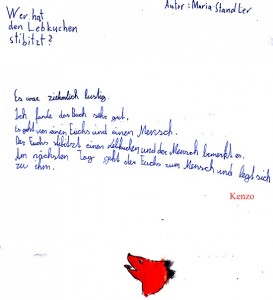 Wer hat
den Lebkuchen
stibitzt?
Autor: Maria Standler
Es war ziehmlich lustig.
Ich finde das Buch sehr gut.
Es geht um einen Fuchs und einen Mensch.
Der Fuchs stibitzt einen Lebkuchen und der Mensch bemerkt es.
Am nächsten Tag geht der Fuchs zum Mensch und legt sich
zu ihm.
Kenzo